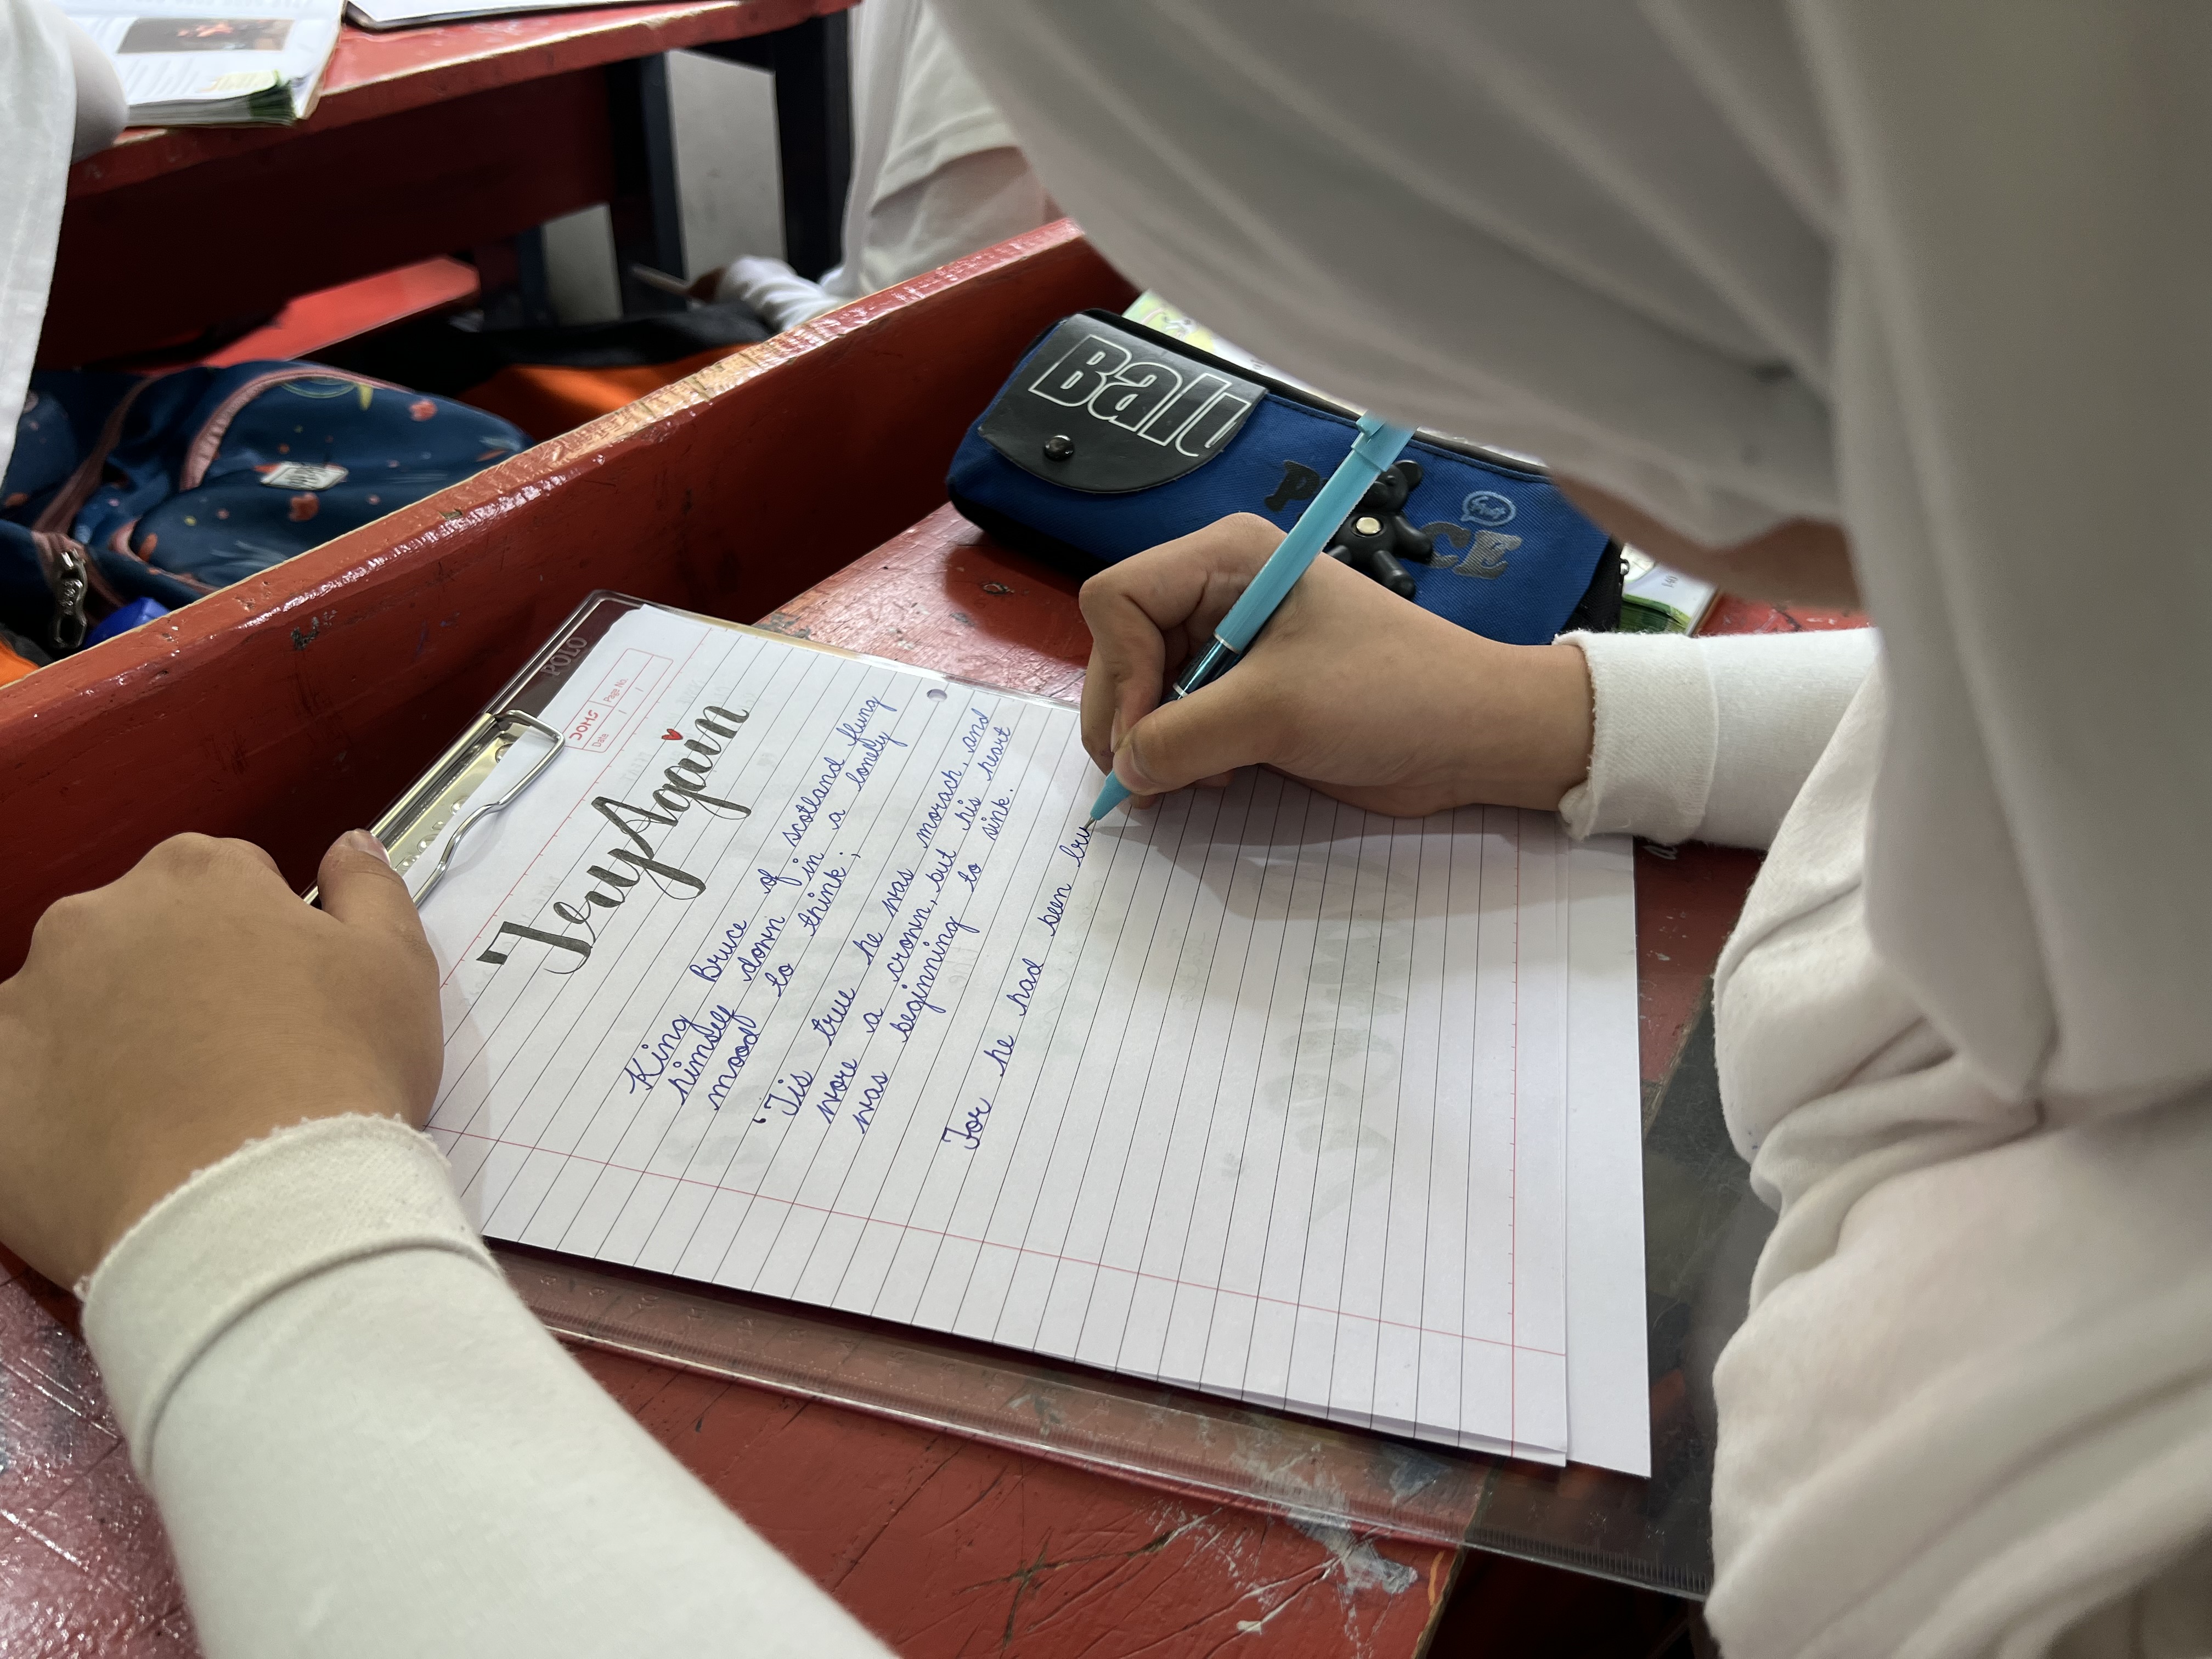 Ball
P
CE
POLO
DOMS
Page No.
Date
Try Again
King Bruce of scotland flung
himself down in a lonely
mood to think;
'Tis true he was morach, and
wore a crown, but his heart
was beginning to sink.
For he had been bru
140